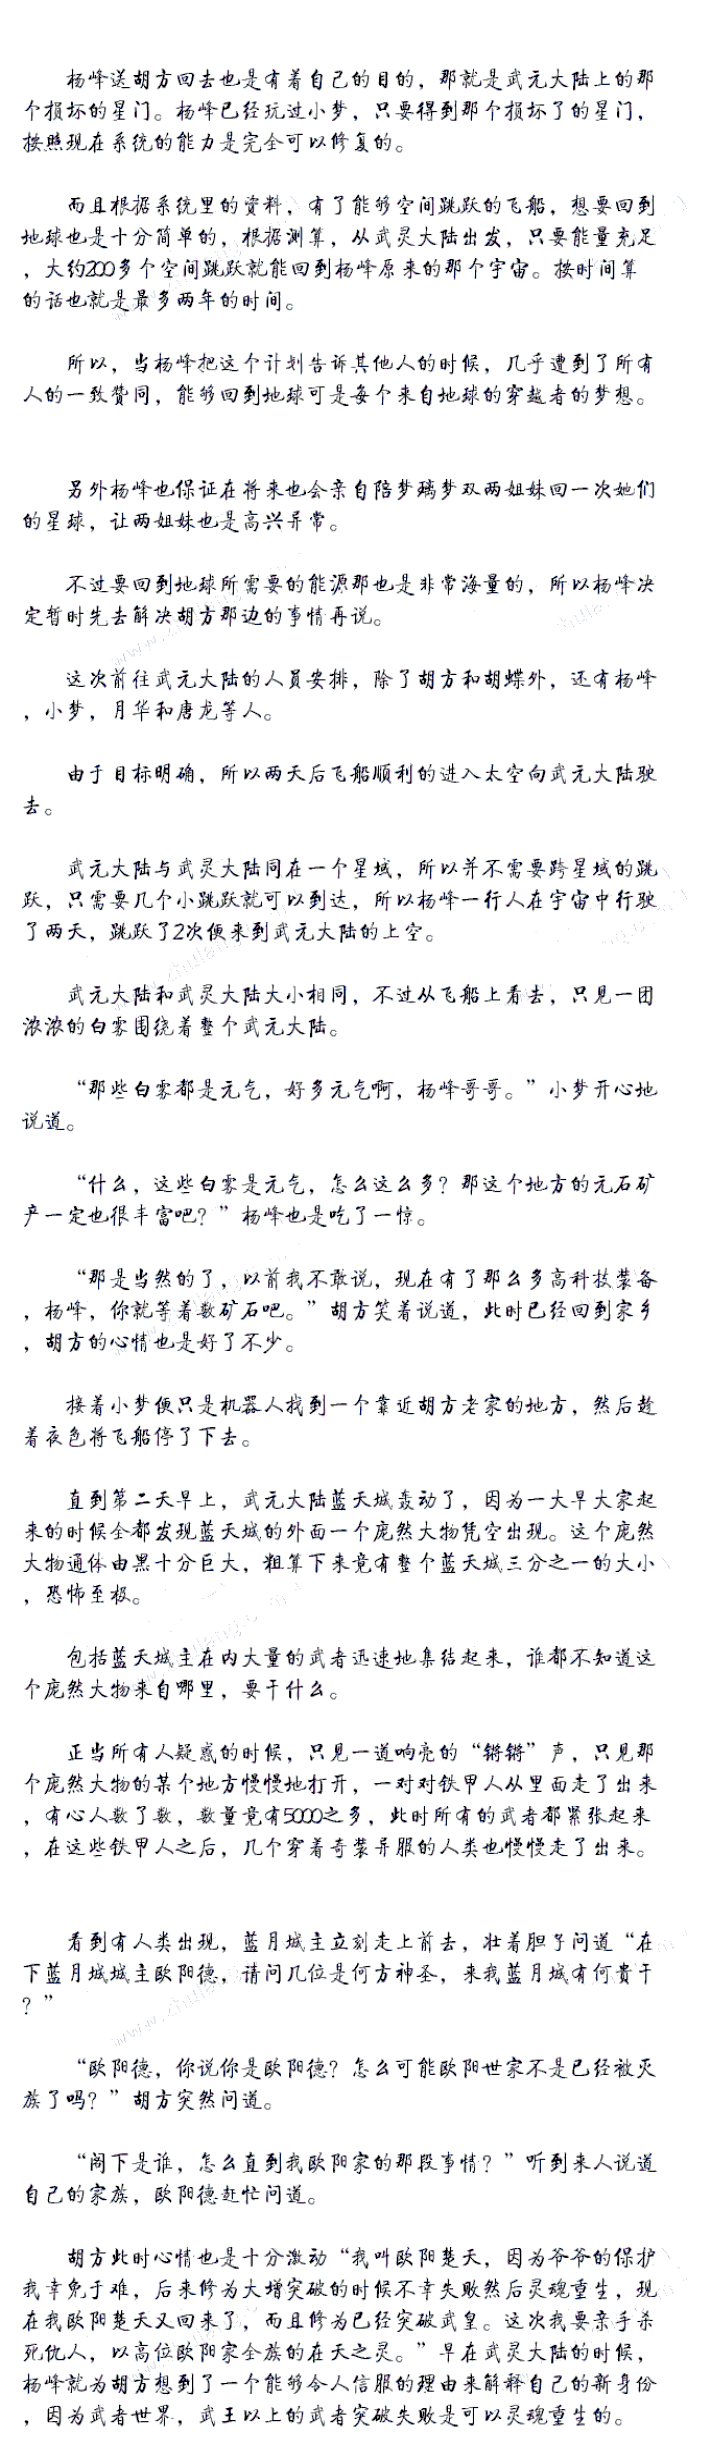 杨峰送胡方回去也是有着自己的目的，那就是武元大陆上的那
个损坏的星门。杨峰已经玩过小梦，只要得到那个损坏了的星门，
按照现在系统的能力是完全可以修复的。
而且根据系统里的资料，有了能够空间跳跃的飞船，想要回到
地球也是十分简单的，根据测算，从武灵大陆出发，只要能量充足
，大约200多个空间跳跃就能回到杨峰原来的那个宇宙。按时间算
的话也就是最多两年的时间。
所以，当杨峰把这个计划告诉其他人的时候，几乎遭到了所有
人的一致赞同，能够回到地球可是每个来自地球的穿越者的梦想。
另外杨峰也保证在将来也会亲自陪梦璃梦双两姐妹回一次她们
的星球，让两姐妹也是高兴异常。
不过要回到地球所需要的能源那也是非常海量的，所以杨峰决
定暂时先去解决胡方那边的事情再说。
这次前往武元大陆的人员安排，除了胡方和胡蝶外，还有杨峰
，小梦，月华和唐龙等人。
由于目标明确，所以两天后飞船顺利的进入太空向武元大陆驶
去。
武元大陆与武灵大陆同在一个星域，所以并不需要跨星域的跳
跃，只需要几个小跳跃就可以到达，所以杨峰一行人在宇宙中行驶
了两天，跳跃了2次便来到武元大陆的上空。
武元大陆和武灵大陆大小相同，不过从飞船上看去，只见一团
浓浓的白雾围绕着整个武元大陆。
“那些白雾都是元气，好多元气啊，杨峰哥哥。”小梦开心地
说道。
“什么，这些白雾是元气，怎么这么多？那这个地方的元石矿
产一定也很丰富吧？”杨峰也是吃了一惊。
“那是当然的了，以前我不敢说，现在有了那么多高科技装备
，杨峰，你就等着数矿石吧。”胡方笑着说道，此时已经回到家乡
，胡方的心情也是好了不少。
接着小梦便只是机器人找到一个靠近胡方老家的地方，然后趁
着夜色将飞船停了下去。
直到第二天早上，武元大陆蓝天城轰动了，因为一大早大家起
来的时候全都发现蓝天城的外面一个庞然大物凭空出现。这个庞然
大物通体由黑十分巨大，粗算下来竟有整个蓝天城三分之一的大小
，恐怖至极。
包括蓝天城主在内大量的武者迅速地集结起来，谁都不知道这
个庞然大物来自哪里，要干什么。
正当所有人疑惑的时候，只见一道响亮的“锵锵”声，只见那
个庞然大物的某个地方慢慢地打开，一对对铁甲人从里面走了出来
，有心人数了数，数量竟有5000之多，此时所有的武者都紧张起来
，在这些铁甲人之后，几个穿着奇装异服的人类也慢慢走了出来。
看到有人类出现，蓝月城主立刻走上前去，壮着胆子问道“在
下蓝月城城主欧阳德，请问几位是何方神圣，来我蓝月城有何贵干
？”
“欧阳德，你说你是欧阳德？怎么可能欧阳世家不是已经被灭
族了吗？”胡方突然问道。
“阁下是谁，怎么直到我欧阳家的那段事情？”听到来人说道
自己的家族，欧阳德赶忙问道。
胡方此时心情也是十分激动“我叫欧阳楚天，因为爷爷的保护
我幸免于难，后来修为大增突破的时候不幸失败然后灵魂重生，现
在我欧阳楚天又回来了，而且修为已经突破武皇。这次我要亲手杀
死仇人，以高位欧阳家全族的在天之灵。”早在武灵大陆的时候，
杨峰就为胡方想到了一个能够令人信服的理由来解释自己的新身份
，因为武者世界，武王以上的武者突破失败是可以灵魂重生的。